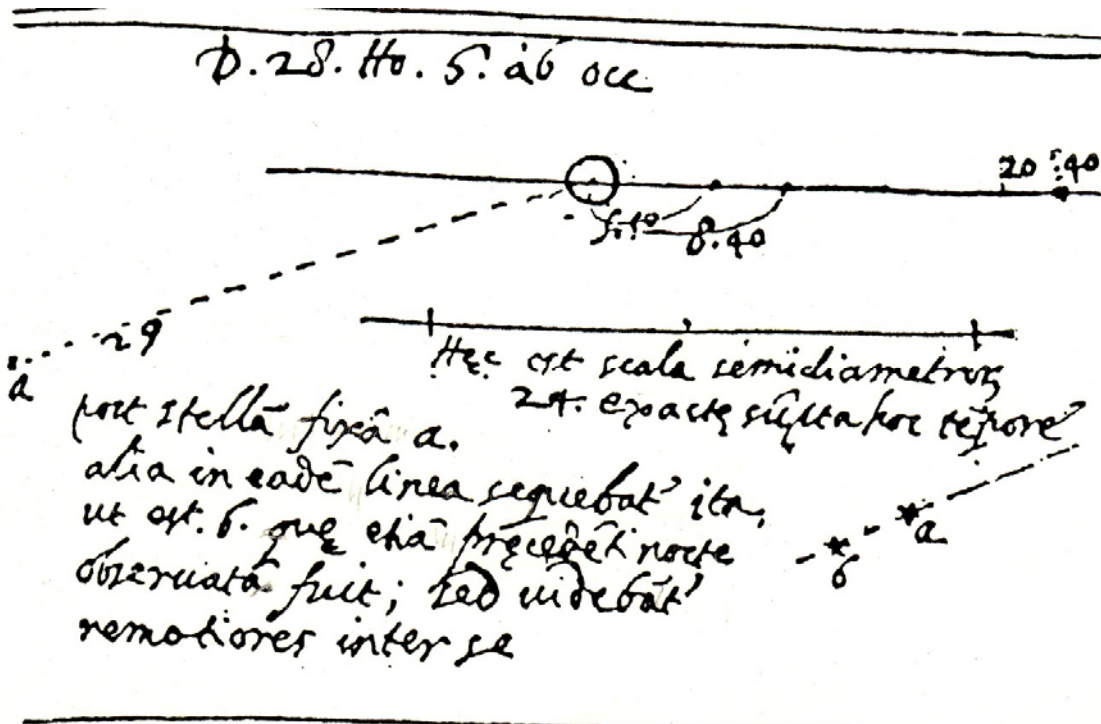 D. 28. Ho. 6. ab occ
20 :40
8.40
29
a
Hęc est scala semidiametrorū
24. exactę sūpta hoc tēpore
post stellā fixā a.
alia in eadē linea sequebat' ita,
ut est. b. quę etiā pręcedēti nocte
obseruata fuit; sed uidebāt'
remotiores inter se
a
b